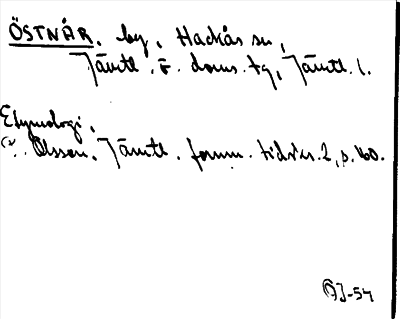 ÖSTNÅR, by, Hackås sn,
Jämtl. ö. doms. tg, Jämtl. l.
Etymologi,
P. Olsson, Jämtl. fornm. tidskr. 2, s. 160.
-54